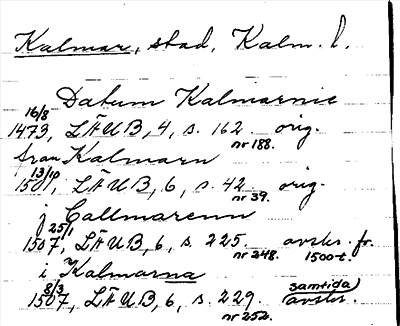 Kalmar, stad, Kalm. l.
Datum Kalmarnie
16/8
1473, LÄUB, 4, s. 162. orig.
nr 188.
fran Kalmarn
13/10
1501, LÄUB, 6, s. 42. orig.
nr 39.
j Callmarenn
25/1
1507, LÄUB, 6, s. 225. avskr. fr.
nr 248. 1500-t.
i Kalmarna
8/3 samtida
1507, LÄUB, 6, s. 229. avskr.
nr 252.